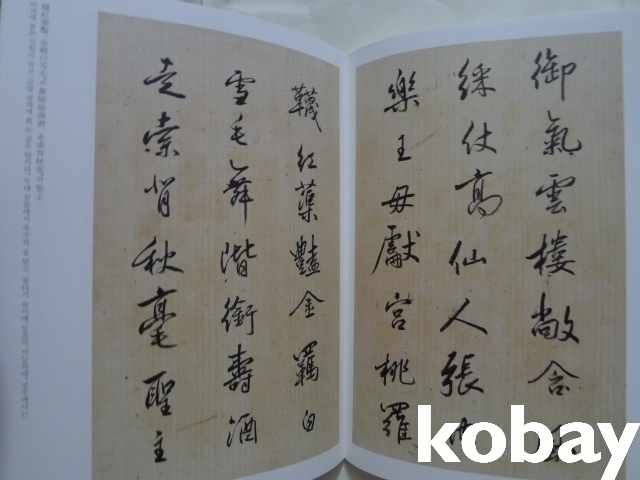 御氣雲樓敞含風
綵仗高仙人張內
樂王母獻宮桃羅
韈紅蕖豔金羈白
雪毛舞階銜壽酒
走索背秋毫聖主
kobay